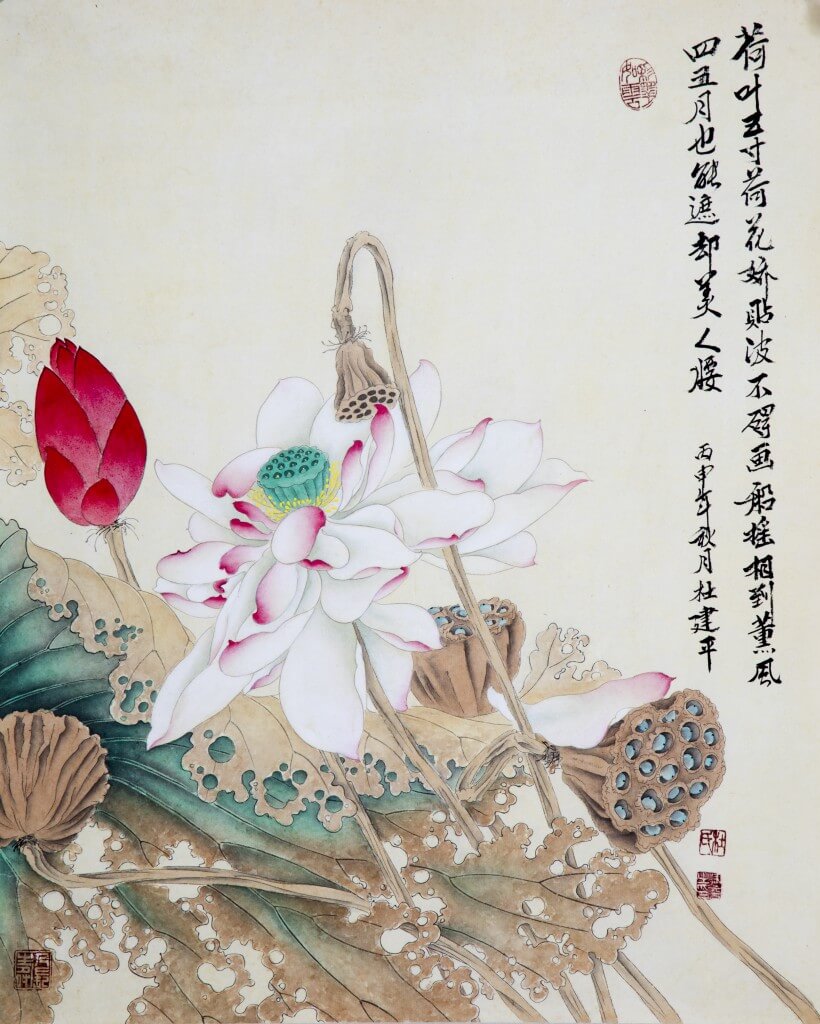 荷叶五寸荷花娇贴波不碍画船摇相到薰风
四五月也能遮却美人腰
丙申年秋月杜建平
杜氏